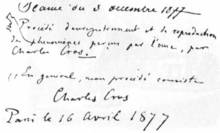 Séance du 3 décembre 1877
Procédé d'enregistrement et de reproduction
des phénomènes perçus par l'ouïe, par
Charles Cros.
"En général, mon procédé consiste
Charles Cros
Paris le 16 Avril 1877